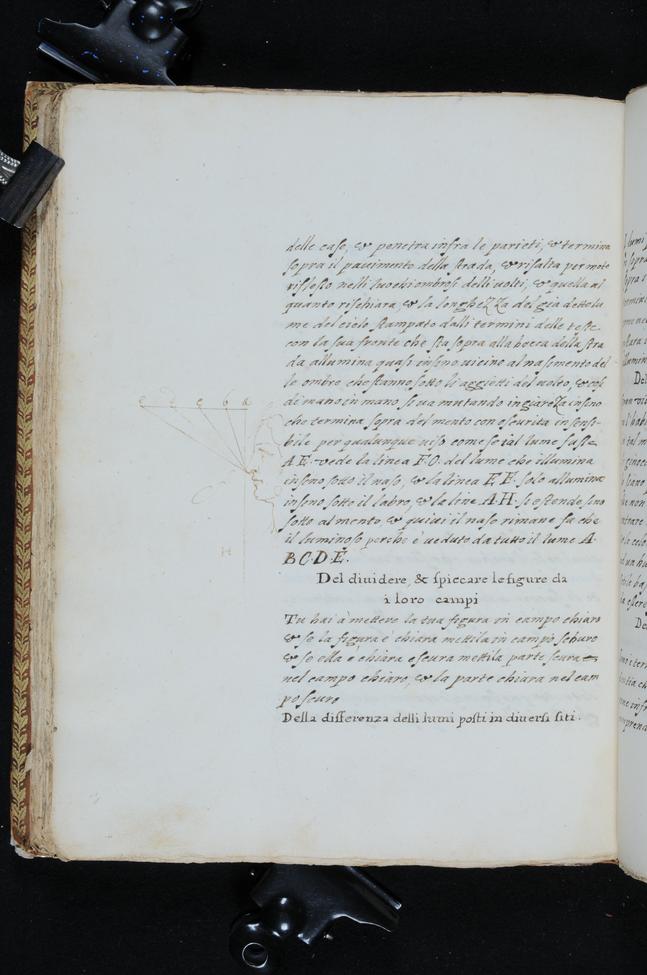 delle case, & penetra infra le parieti, & termina
sopra il pavimento della strada, & risalta per moto
riflesso nelli suochi ombrosi delli volti, & quella al
quanto rischiara, & la longhezza del gia detto lu
me del cielo stampato dalli termini delle teste
con la sua fronte che sta sopra alla bocca della stra
da allumina quasi insino vicino al nascimento del
le ombre che stanno sotto li aggetti del volto, & così
di mano in mano si va mutando in giarezza insino
che termina sopra del mento con oscurità insensi-
bile per qualunque viso come se tal lume fusse
A E. vede la linea F O. del lume che illumina
insino sotto il naso, & la linea E F. solo allumina
insino sotto il labro, & la linea A H. si estende sino
sotto al mento, & quivi il naso rimane fa che
il luminoso perche è veduto da tutto il lume A.
B C D E.
Del diuidere, & spiccare le figure da
i loro campi
Tu hai à mettere la tua figura in campo chiaro
& se la figura è chiara mettila in campo schuro
& se ella è chiara e scura mettila parte scura
nel campo chiaro, & la parte chiara nel cam
po scuro
Della differenza delli lumi posti in diuersi siti.
e d c b a
H